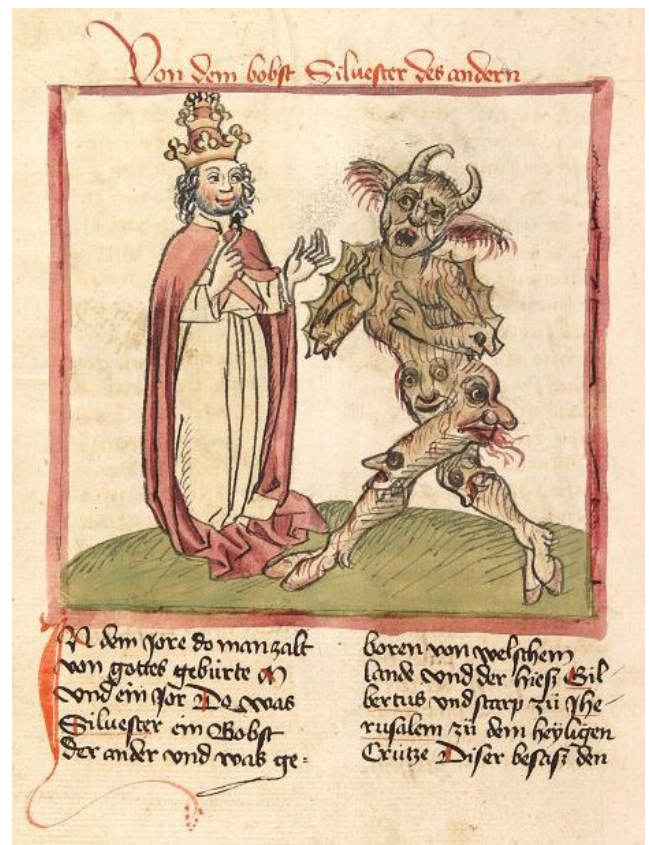 Von dem bobst Siluester des andern
IN dem Jore do man zalt
von gottes gebúrte M
vnd ein Jor Do was
Siluester ein Bobst
der ander vnd was ge=
boren von welschem
lande vnd der hiesz Gil-
bertus vnd starp zú Jhe-
rusalem zú dem heyligen
Crútze Diser besasz den